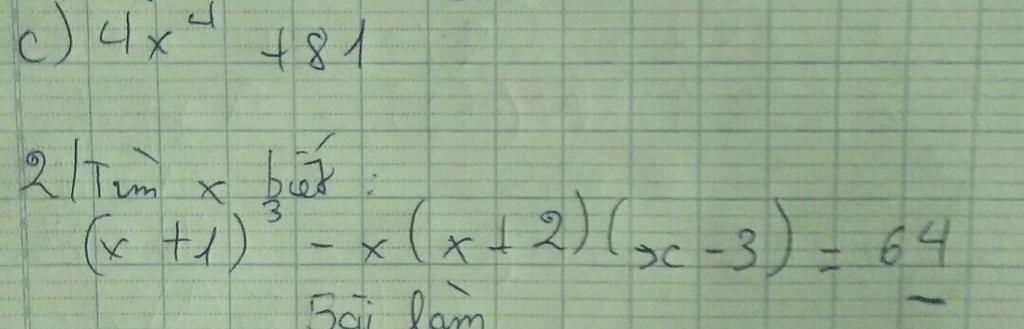 c) 4x⁴ + 81
2/ Tìm x biết :
(x + 1)³ - x(x + 2)(x - 3) = 64
Bài làm